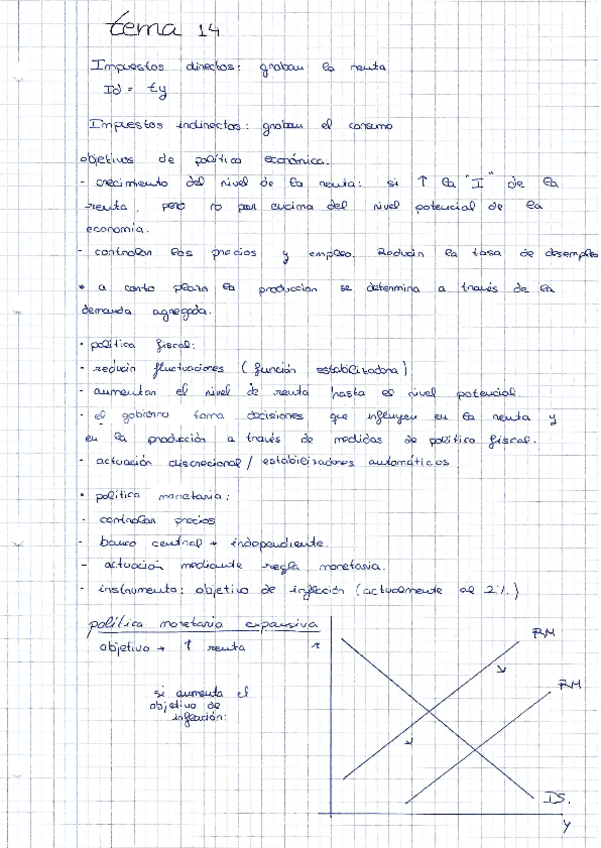 tema 14
Impuestos directos: graban la renta
Id = ty
Impuestos indirectos: graban el consumo
objetivos de política económica.
- crecimiento del nivel de la renta: si ↑ la "I" de la
renta, pero no por encima del nivel potencial de la
economia.
- controlar los precios y empleo. Reducir la tasa de desempleo
* a corto plazo la producción se determina a través de la
demanda agregada.
• política fiscal:
- reducir fluctuaciones (función estabilizadora)
- aumentar el nivel de renta hasta el nivel potencial.
- el gobierno toma decisiones que influyen en la renta y
en la producción a través de medidas de política fiscal.
- actuación discrecional / estabilizadores automáticos
• política monetaria:
- controlar precios
- banco central → independiente.
- actuación mediante regla monetaria.
- instrumento: objetivo de inflación (actualmente al 2%.)
política monetaria expansiva
objetivo → ↑ renta
r
RM
RM
si aumenta el
objetivo de
inflación:
IS.
y